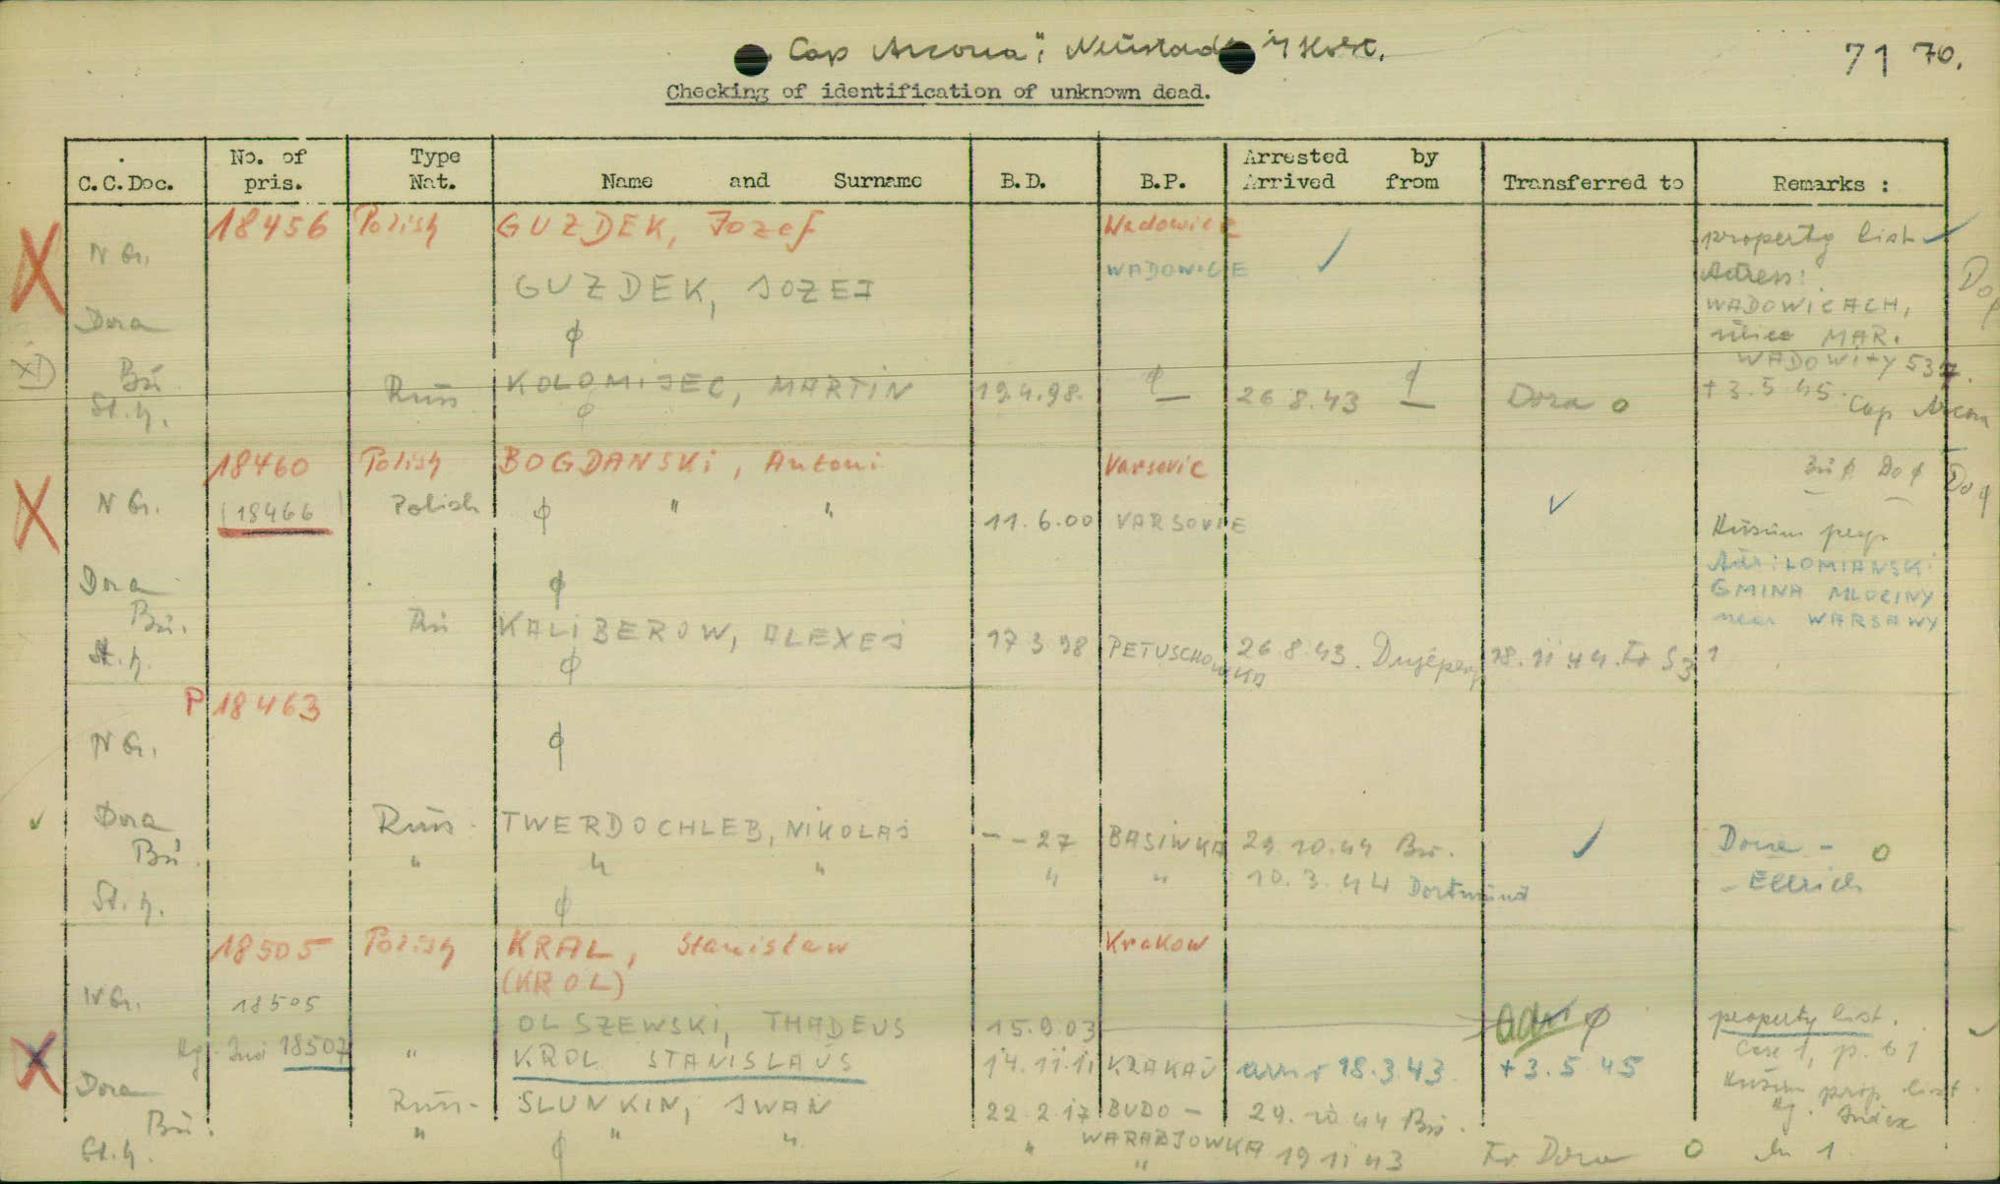 "Cap Arcona", Neustadt i/ Holst.
71 70.
Checking of identification of unknown dead.
C.C.Doc. No. of pris. Type Nat. Name and Surname B.D. B.P. Arrested by Arrived from Transferred to Remarks :
18456 Polish GUZDEK, Jozef Wadowice property list ✓
N G. GUZDEK, JOZEJ WADOWICE ✓ Adress:
Dora ϕ WADOWICACH,
MAR.
WADOWITY
Bu. Russ KOLOMIJEC, MARTIN 19.4.98. ϕ 26 8.43 ϕ Dora o + 3.5 45. Cap Arcon
St.h. ϕ
18460 Polish BOGDANSKi, Antoni Varsovie Bu ϕ Do ϕ Do ϕ
N G. (18466) Polish ϕ " " 11.6.00 VARSOVIE ✓
Adr: LOMIANSKI
Dora ϕ GMINA MLOCINY
near WARSAWY
Bu. Ru KALIBEROW, ALEXEJ 17 3 98 PETUSCHOWKA 26 8.43. 18.11 44. Tr S3 1
St.h. ϕ
P 18463
N G. ϕ
✓ Dora Russ. TWERDOCHLEB, NIKOLAJ - - 27 BASIWKA 29 10.44 Bu. ✓ Dora - o
Bu. " " " " " 10.3.44 Dortmund - Ellrich
St.h. ϕ
18505 Polish KRAL, Stanislaw Krakow
(KROL)
N G. 18505 OLSZEWSKI, THADEUS 15.9.03 ϕ property list.
18507 " KROL STANISLAUS 14.11.11 KRAKAU arr. 18.3.43 + 3.5 45 Case 1, p. 61
Dora Russ- SLUNKIN, IWAN 22 2.17 BUDO - 29.10 44 Bu. prop list
Bu. " " " " WARADJOWKA 19 11 43 Tr Dora o Index
St.h. ϕ "